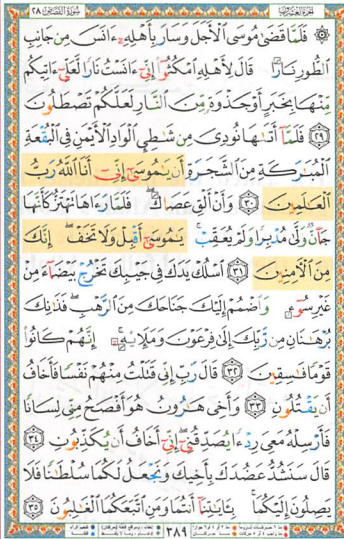 الجزء العشرون سورة القصص ٢٨
۞ فَلَمَّا قَضَىٰ مُوسَى ٱلْأَجَلَ وَسَارَ بِأَهْلِهِۦٓ ءَانَسَ مِن جَانِبِ
ٱلطُّورِ نَارًا قَالَ لِأَهْلِهِ ٱمْكُثُوٓا۟ إِنِّىٓ ءَانَسْتُ نَارًا لَّعَلِّىٓ ءَاتِيكُم
مِّنْهَا بِخَبَرٍ أَوْ جَذْوَةٍ مِّنَ ٱلنَّارِ لَعَلَّكُمْ تَصْطَلُونَ
﴿٢٩﴾ فَلَمَّآ أَتَىٰهَا نُودِىَ مِن شَـٰطِئِ ٱلْوَادِ ٱلْأَيْمَنِ فِى ٱلْبُقْعَةِ
ٱلْمُبَـٰرَكَةِ مِنَ ٱلشَّجَرَةِ أَن يَـٰمُوسَىٰٓ إِنِّىٓ أَنَا ٱللَّهُ رَبُّ
ٱلْعَـٰلَمِينَ ﴿٣٠﴾ وَأَنْ أَلْقِ عَصَاكَ ۖ فَلَمَّا رَءَاهَا تَهْتَزُّ كَأَنَّهَا
جَآنٌّ وَلَّىٰ مُدْبِرًا وَلَمْ يُعَقِّبْ ۚ يَـٰمُوسَىٰٓ أَقْبِلْ وَلَا تَخَفْ ۖ إِنَّكَ
مِنَ ٱلْـَٔامِنِينَ ﴿٣١﴾ ٱسْلُكْ يَدَكَ فِى جَيْبِكَ تَخْرُجْ بَيْضَآءَ مِنْ
غَيْرِ سُوٓءٍ وَٱضْمُمْ إِلَيْكَ جَنَاحَكَ مِنَ ٱلرَّهْبِ ۖ فَذَٰنِكَ
بُرْهَـٰنَانِ مِن رَّبِّكَ إِلَىٰ فِرْعَوْنَ وَمَلَإِي۟هِۦٓ ۚ إِنَّهُمْ كَانُوا۟
قَوْمًا فَـٰسِقِينَ ﴿٣٢﴾ قَالَ رَبِّ إِنِّى قَتَلْتُ مِنْهُمْ نَفْسًا فَأَخَافُ
أَن يَقْتُلُونِ ﴿٣٣﴾ وَأَخِى هَـٰرُونُ هُوَ أَفْصَحُ مِنِّى لِسَانًا
فَأَرْسِلْهُ مَعِىَ رِدْءًا يُصَدِّقُنِىٓ ۖ إِنِّىٓ أَخَافُ أَن يُكَذِّبُونِ ﴿٣٤﴾
قَالَ سَنَشُدُّ عَضُدَكَ بِأَخِيكَ وَنَجْعَلُ لَكُمَا سُلْطَـٰنًا فَلَا
يَصِلُونَ إِلَيْكُمَا ۚ بِـَٔايَـٰتِنَآ أَنتُمَا وَمَنِ ٱتَّبَعَكُمَا ٱلْغَـٰلِبُونَ ﴿٣٥﴾
٣٨٩